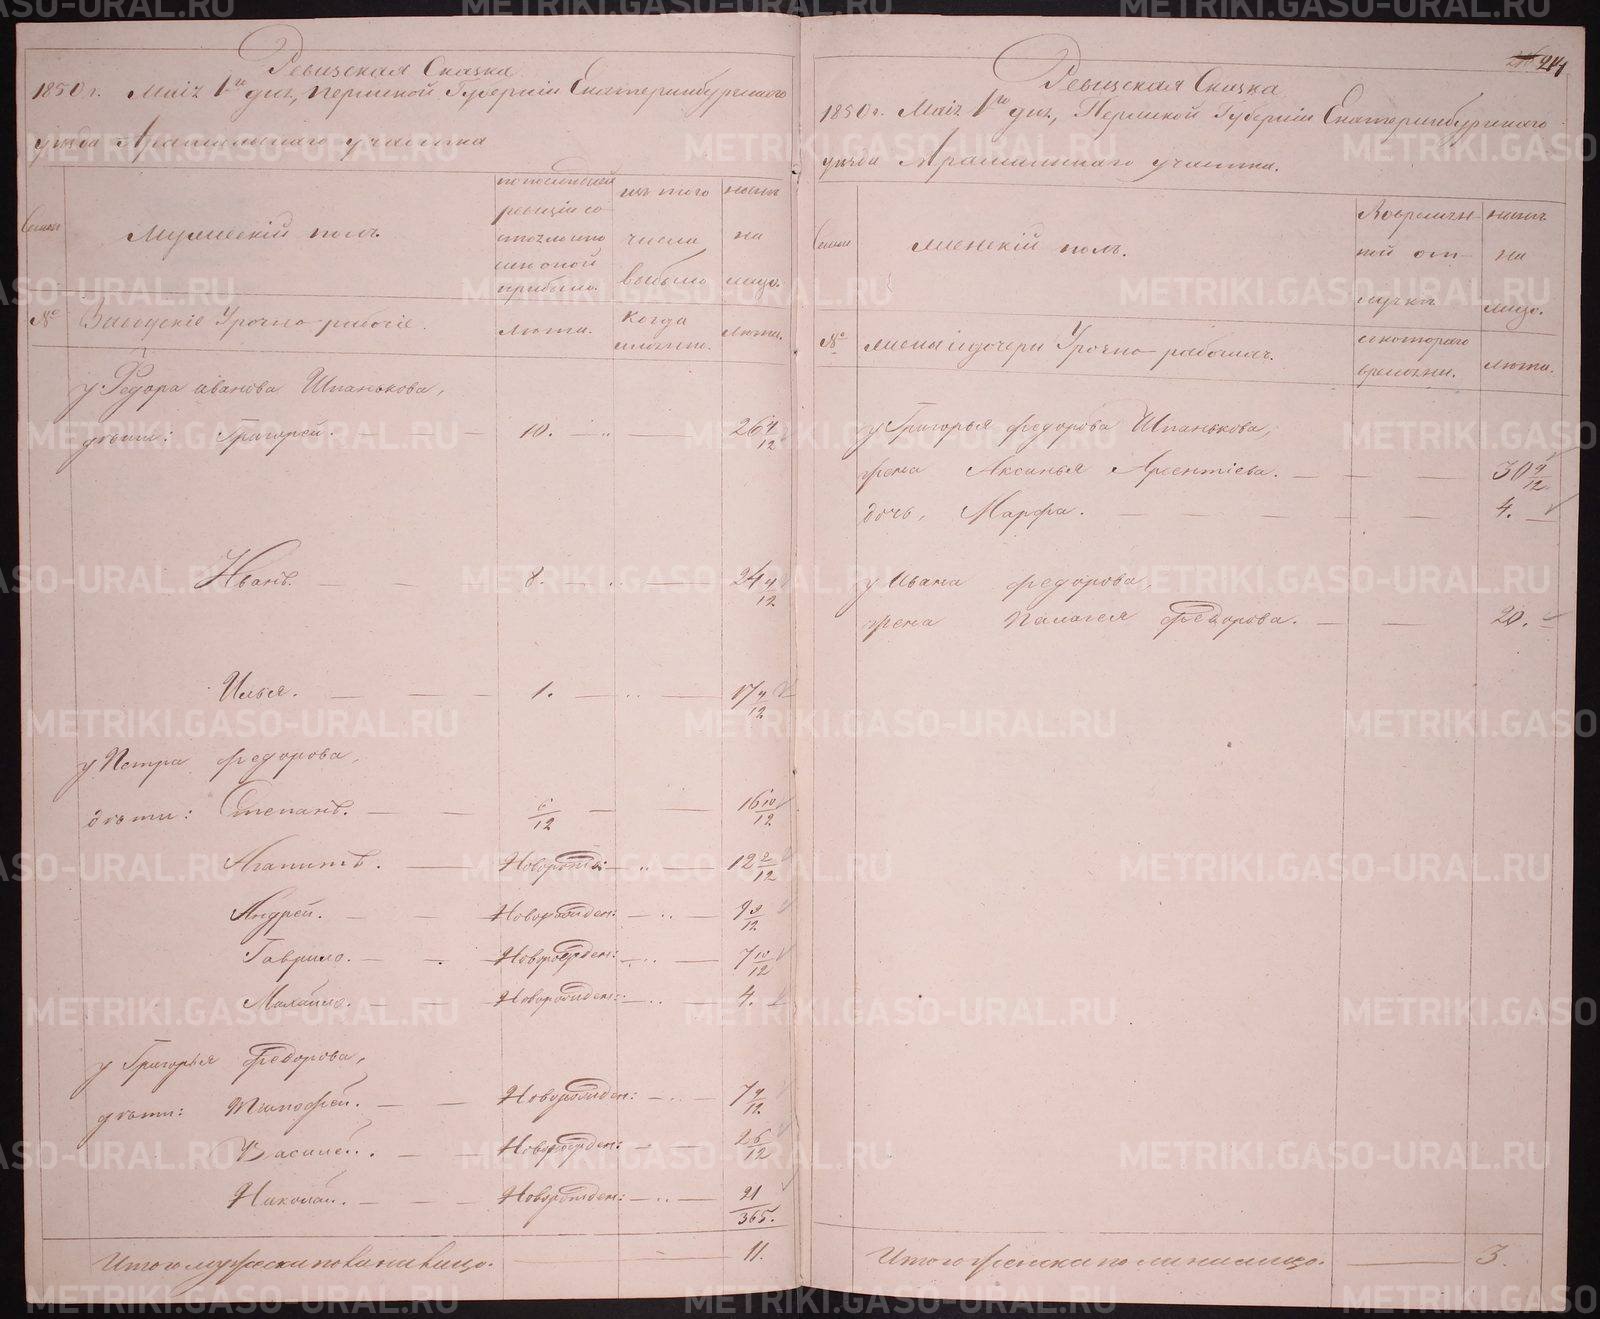 Ревизская Сказка
1850 г. Маія 1го дня, Пермской Губерніи Екатеринбургскаго
уезда Арамильскаго участка
Семьи
Мужескій полъ.
по последней ревизіи состояло или после оной прибыло.
изъ того числа выбыло
ныне на лицо.
№
Заводскіе Урочно-рабочіе.
лета.
Когда именно.
лета.
у Федора Иванова Шпанькова,
дети: Григорей. — — 10. — .. — 26 4/12
Иванъ. — — 8. — .. — 24 4/12
Илья. — — 1. — .. — 17 4/12
у Петра Федорова,
дети: Степанъ. — — 6/12 — — 16 10/12
Агапитъ. — Новорожден: — .. — 12 2/12
Андрей. — — Новорожден: — .. — 9 8/12
Гаврило. — — Новорожден: — .. — 7 10/12
Михайло. — — Новорожден: — .. — 4. —
у Григорья Федорова,
дети: Тимофей. — — Новорожден: — .. — 7 4/12
Василей. — — Новорожден: — — 2 6/12
Николай. — — Новорожден: — .. — 21/365.
Итого мужеска пола на лицо. — — 11.
24
Ревизская Сказка
1850 г. Маія 1го дня, Пермской Губерніи Екатеринбургскаго
уезда Арамильскаго участка.
Семьи
Женскій полъ.
Во временной отлучке
ныне на лицо.
№
жены и дочери Урочно-рабочихъ.
съ котораго времени.
лета.
у Григорья Федорова Шпанькова,
жена Аксинья Арсентіева. — — — 30 9/12
дочь, Марфа. — — — — — 4. —
у Ивана Федорова,
жена Палагея Федорова. — — — 20. —
Итого женска пола на лицо. — 3.
METRIKI.GASO-URAL.RU